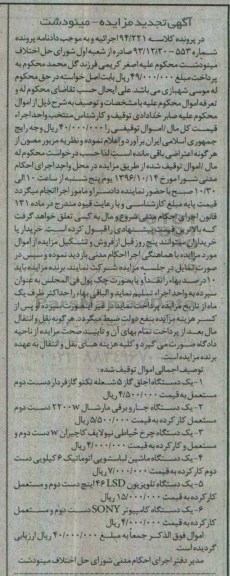 آگهی تجدید مزایده - مینودشت
در پرونده کلاسه ۹۴/۲۲۱ اجرائیه و به موجب دادنامه پرونده
شماره ۵۵۳-۹۳/۱۲/۲۰ صادره از شعبه اول شورای حل اختلاف
مینودشت محکوم علیه اصغر کریمی فرزند گل محمد محکوم به
پرداخت مبلغ ۴۹/۰۰۰/۰۰۰ ریال بابت اصل خواسته در حق محکوم
له موسی شهبازی می باشد. علی ایحال حسب تقاضای محکوم له و
تعرفه اموال محکوم علیه با مشخصات و توصیف به شرح ذیل از اموال
محکوم علیه صابر خدادادی توقیف و کارشناس منتخب واحد اجرا
قیمت کل مال/اموال توقیفی را ۴۰/۰۰۰/۰۰۰ ریال وجه رایج
جمهوری اسلامی ایران برآورد و اعلام نموده و نظریه مزبور مصون از
هرگونه اعتراضی باقی مانده است لذا حسب درخواست محکوم له
مال/اموال توقیف شده از طریق مزایده در محل واحد اجرای احکام
مدنی شورا مورخ ۱۳۹۶/۱۰/۱۴ یوم پنج شنبه از ساعت ۱۰ الی
۱۰/۳۰ صبح با حضور نماینده دادسرا و مامور اجرا انجام میگردد
قیمت پایه مبلغ کارشناسی و با رعایت قیود مندرج در ماده ۱۳۱
قانون اجرای احکام مدنی شروع و مال به کسی تعلق خواهد گرفت
که بالاترین قیمت پیشنهادی را قبول کرده است. خریدار یا
خریداران میتوانند پنج روز قبل از فروش و تشکیل مزایده از اموال
مورد مزایده با هماهنگی اجرا احکام مدنی بازدید نموده و سپس در
صورت تمایل در جلسه مزایده شرکت نمایند. برنده مزایده باید
۱۰ درصد بهاء را نقداً و یا بصورت چک پول فی المجلس به عنوان
سپرده به واحد اجرا تسلیم نماید و الباقی بهاء را حداکثر ظرف یک
ماه از تاریخ مزایده پرداخت نماید در غیر اینصورت سپرده او پس از
کسر هزینه مزایده بنفع دولت ضبط میگردد. هرگونه نقل و انتقال
مال بعد از پرداخت تمام بهای آن و تایید صحت مزایده از ناحیه
دادگاه صورت می گیرد و کلیه هزینه های نقل و انتقال به عهده
برنده مزایده است.
توصیف اجمالی اموال توقیف شده:
۱- یک دستگاه اجاق گاز ۵ شعله تکنو گاز فردار دست دوم
مستعمل به قیمت ۴/۵۰۰/۰۰۰ ریال
۲- یک دستگاه جاروبرقی مارشال ۲۲۰۰W دست دوم
مستعمل کار کرده به قیمت ۵/۵۰۰/۰۰۰ ریال
۳- یک دستگاه چرخ خیاطی نیولایف کاچیران W دست دوم و
مستعمل و کار کرده به قیمت ۴/۰۰۰/۰۰۰ ریال
۴- یک دستگاه ماشین لباسشویی اتوماتیک ۶ کیلویی دست
دوم کار کرده به قیمت ۷/۰۰۰/۰۰۰ ریال
۵- یک دستگاه تلویزیون LSD ۴۶ اینچ دست دوم و مستعمل
کار کرده به قیمت ۱۵/۰۰۰/۰۰۰ ریال
۶- یک دستگاه کامپیوتر SONY دست دوم و مستعمل
کار کرده به قیمت ۴/۰۰۰/۰۰۰ ریال
اموال فوق الذکر جمعاً به مبلغ ۴۰/۰۰۰/۰۰۰ ریال ارزیابی
گردیده است.
مدیر دفتر اجرای احکام مدنی شورای حل اختلاف مینودشت